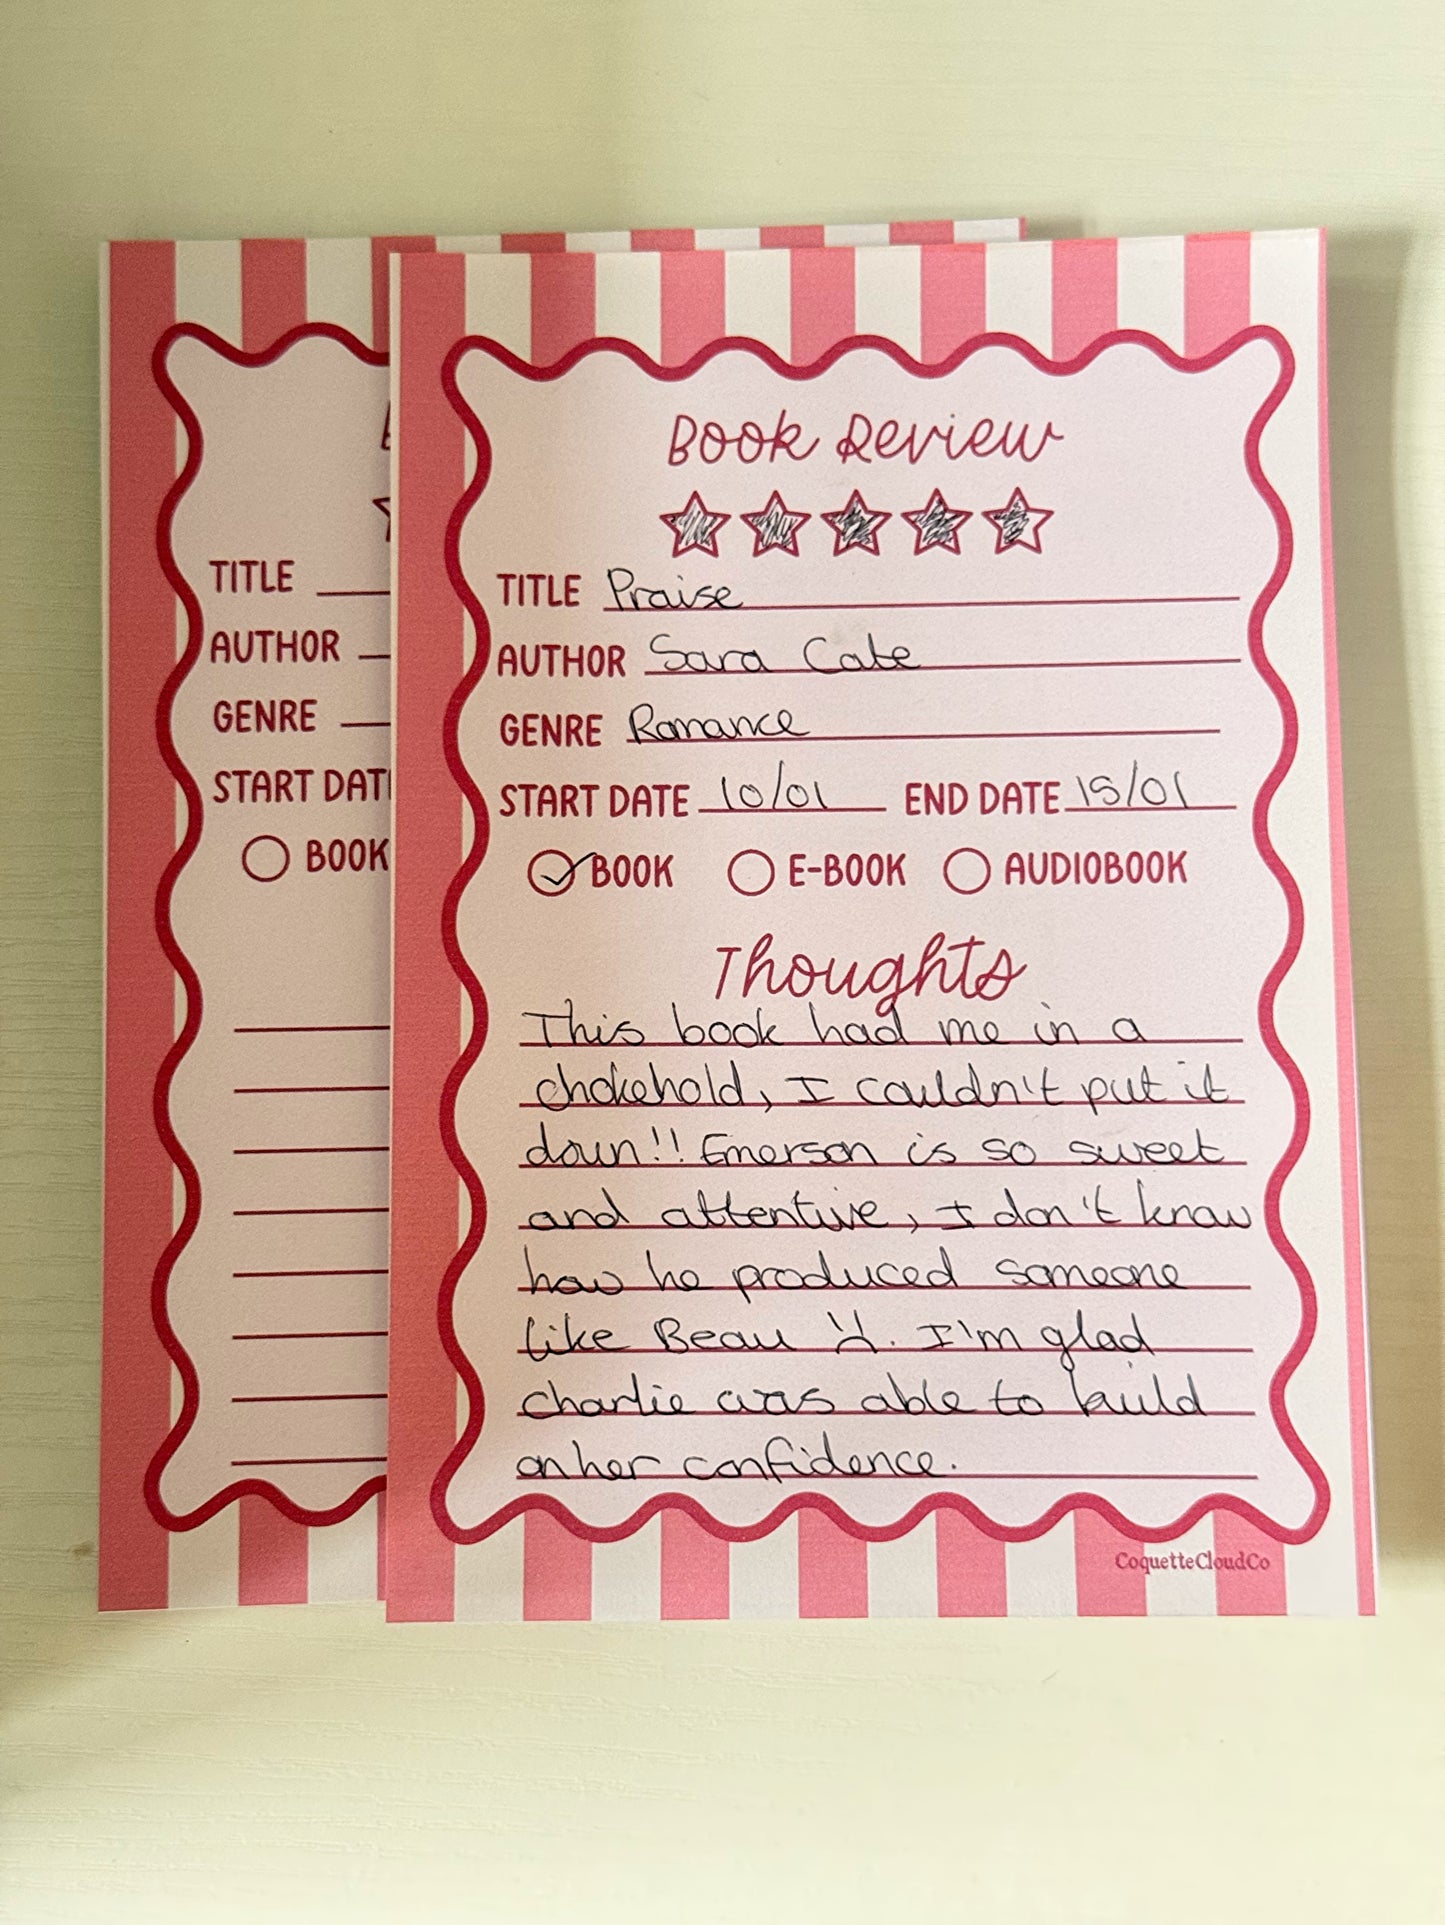 Book Review
TITLE Praise
AUTHOR Sara Cate
GENRE Romance
START DATE 10/01 END DATE 15/01
BOOK E-BOOK AUDIOBOOK
Thoughts
This book had me in a
chokehold, I couldn't put it
down!! Emerson is so sweet
and attentive, I don't know
how he produced someone
like Beau :(. I'm glad
Charlie was able to build
on her confidence.
CoquetteCloudCo
TITLE
AUTHOR
GENRE
START DAT
BOOK